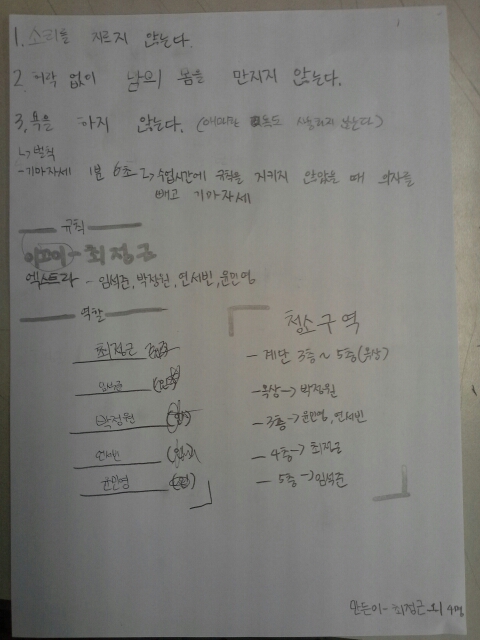 1. 소리를 지르지 않는다.
2. 허락 없이 남의 몸을 만지지 않는다.
3. 욕을 하지 않는다. (애매한 욕도 사용하지 않는다)
ㄴ> 벌칙
- 기마자세 1분
ㄴ> 수업시간에 규칙을 지키지 않았을 때 의자를
빼고 기마자세
규칙
최정근
엑스트라 - 임석준, 박정원, 연서빈, 윤민영
역할
최정근
임석준
박정원
연서빈
윤민영
청소구역
- 계단 3층 ~ 5층(옥상)
- 옥상 -> 박정원
- 3층 -> 윤민영, 연서빈
- 4층 -> 최정근
- 5층 -> 임석준
만든이 - 최정근 외 4명